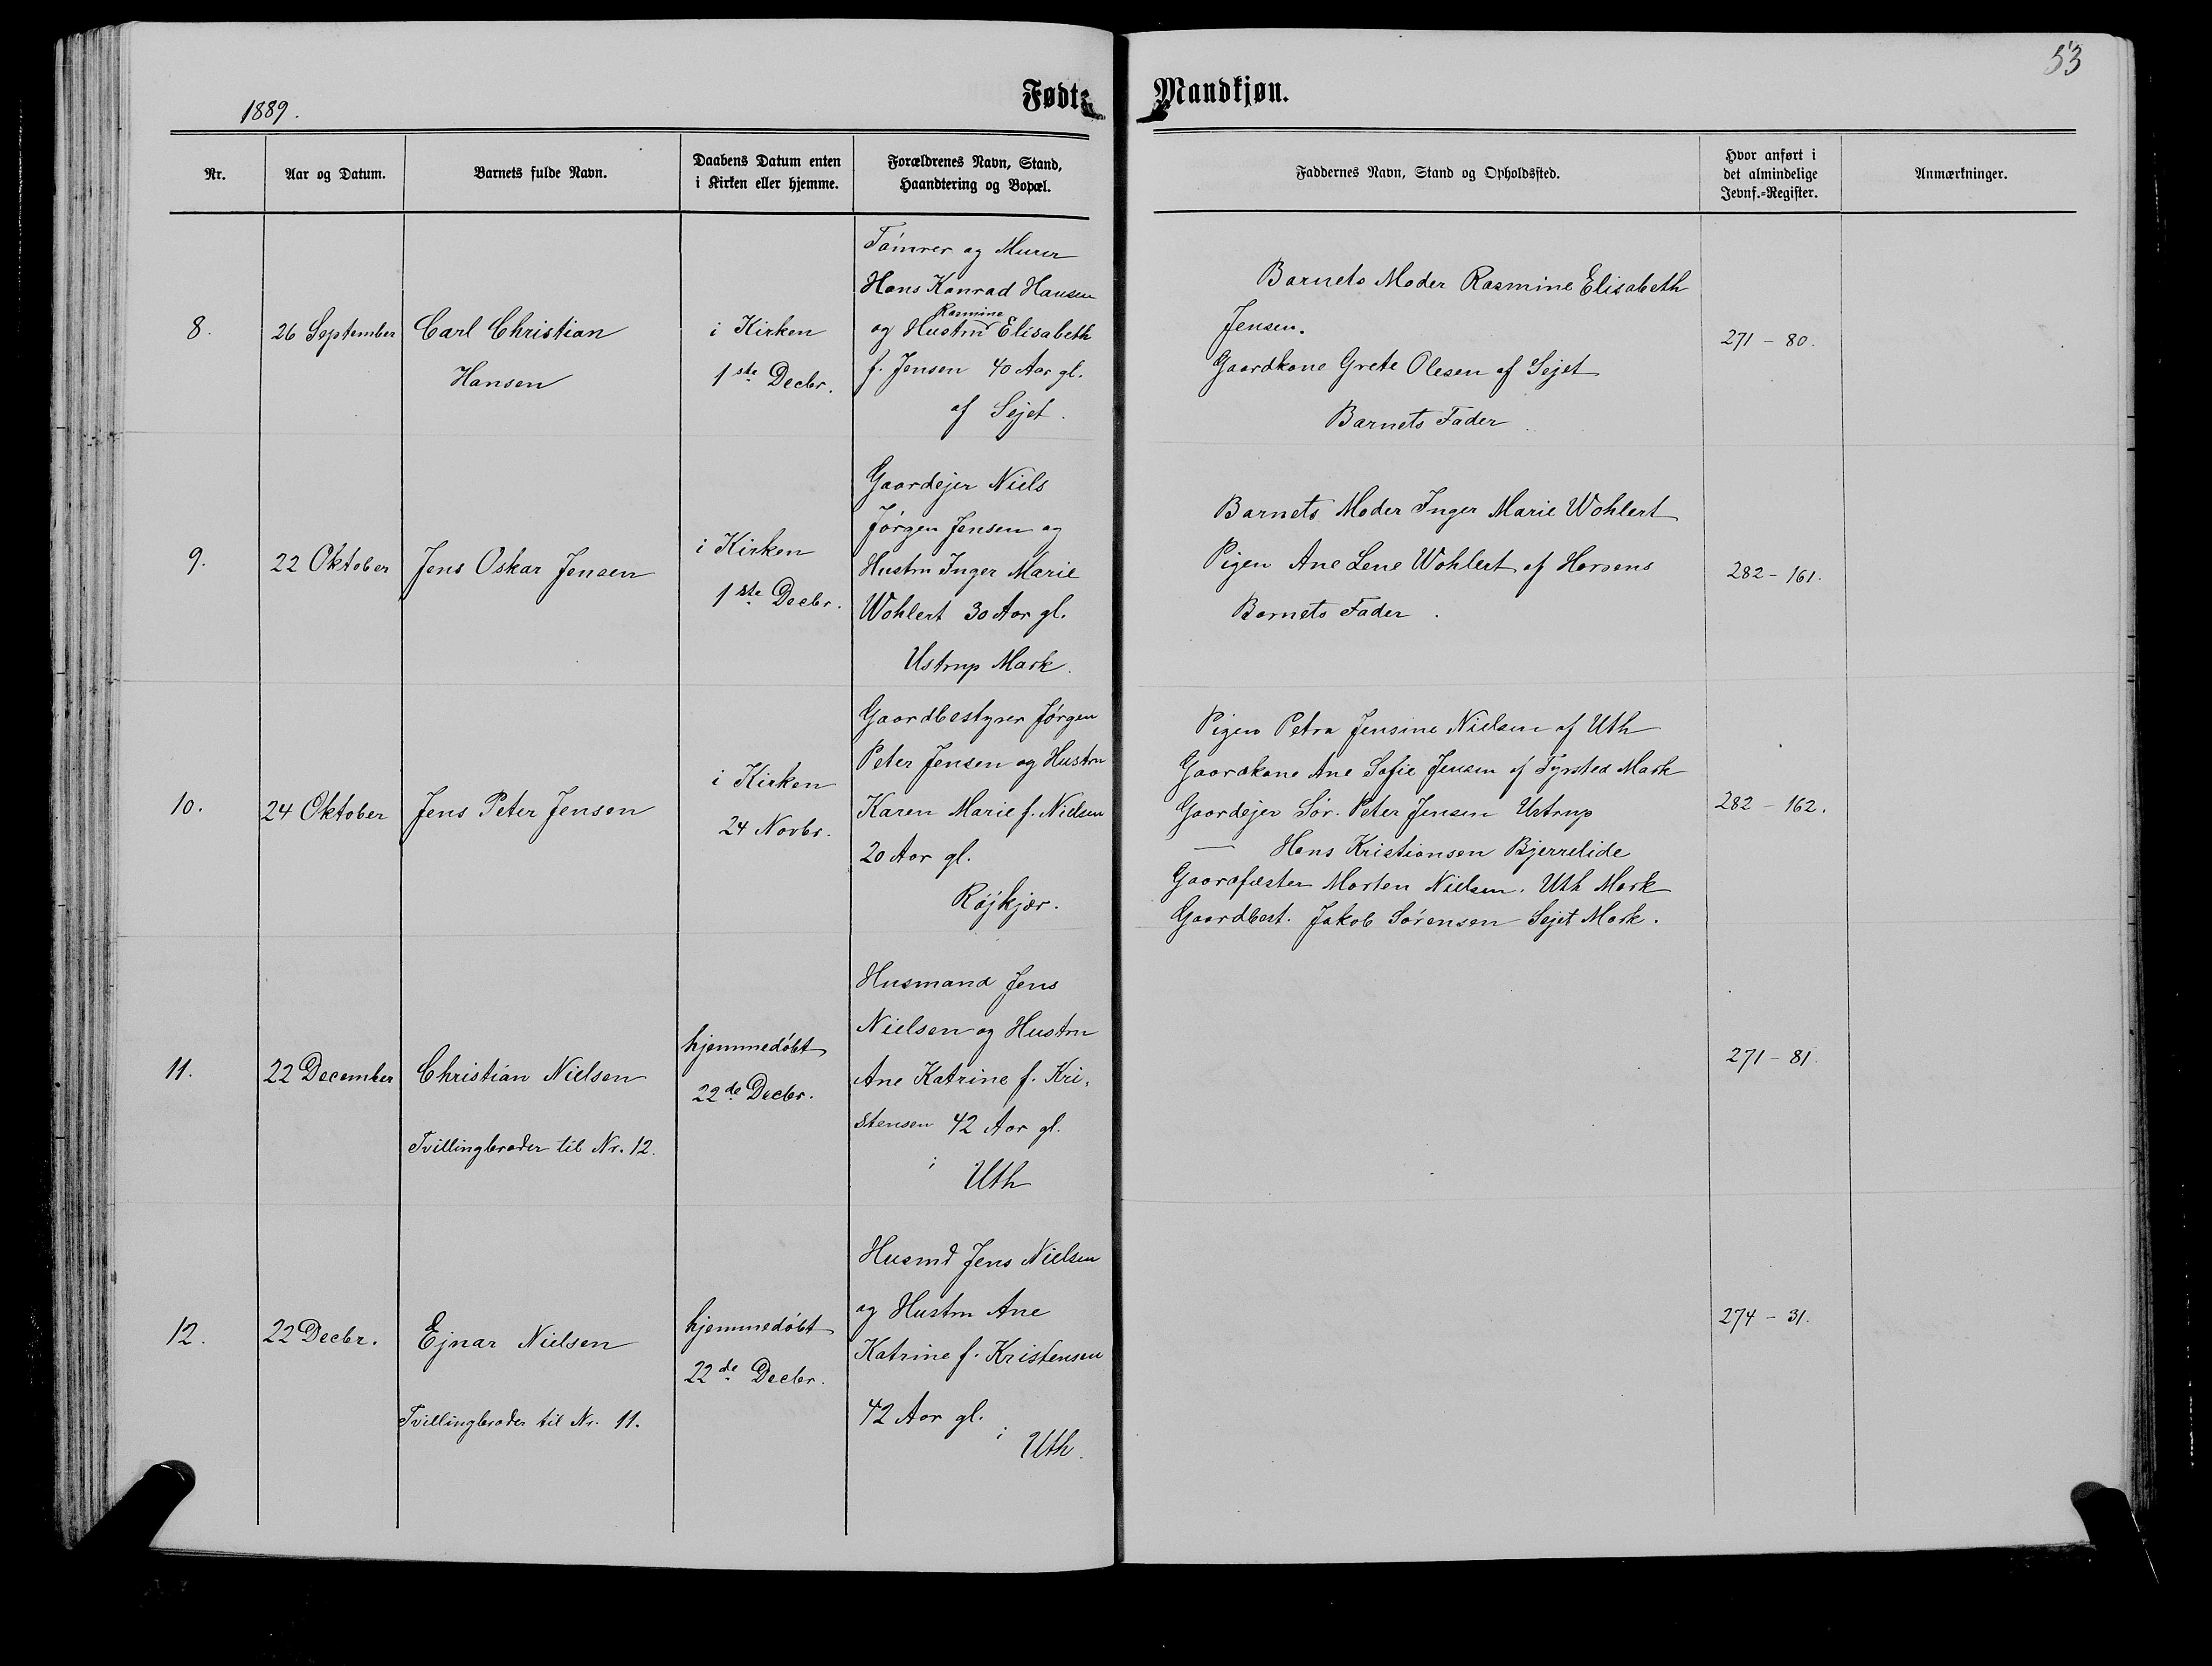 53
1889.
Fødte Mandkjøn.
Nr.
Aar og Datum.
Barnets fulde Navn.
Daabens Datum enten
i Kirken eller hjemme.
Forældrenes Navn, Stand,
Haandtering og Bopæl.
Faddernes Navn, Stand og Opholdssted.
Hvor anført i
det almindelige
Jevnf.-Register.
Anmærkninger.
8.
26 September
Carl Christian
Hansen
i Kirken
1ste Decbr.
Tømrer og Murer
Hans Konrad Hansen
Rasmine
og Hustru Elisabeth
f. Jensen 40 Aar gl.
af Sejet.
Barnets Moder Rasmine Elisabeth
Jensen.
Gaardkone Grete Olesen af Sejet
Barnets Fader.
271 - 80.
9.
22 Oktober
Jens Oskar Jensen
i Kirken
1ste Decbr.
Gaardejer Niels
Jørgen Jensen og
Hustru Inger Marie
Wohlert 30 Aar gl.
Ustrup Mark.
Barnets Moder Inger Marie Wohlert
Pigen Ane Lene Wohlert af Horsens
Barnets Fader.
282 - 161.
10.
24 Oktober
Jens Peter Jensen
i Kirken
24 Novbr.
Gaardbestyrer Jørgen
Peter Jensen og Hustru
Karen Marie f. Nielsen
20 Aar gl.
Røjkjær.
Pigen Petra Jensine Nielsen af Uth
Gaardkone Ane Sofie Jensen af Tyrsted Mark
Gaardejer Sør. Peter Jensen Ustrup
— Hans Kristiansen Bjerrelide
Gaardfæster Morten Nielsen. Uth Mark
Gaardbest. Jakob Sørensen Sejet Mark.
282 - 162.
11.
22 December
Christian Nielsen
Tvillingbroder til Nr. 12.
hjemmedøbt
22de Decbr.
Husmand Jens
Nielsen og Hustru
Ane Katrine f. Kri-
stensen 42 Aar gl.
i Uth
271 - 81.
12.
22 Decbr.
Ejnar Nielsen
Tvillingbroder til Nr. 11.
hjemmedøbt
22de Decbr.
Husmd Jens Nielsen
og Hustru Ane
Katrine f. Kristensen
42 Aar gl.
i Uth.
274 - 31.